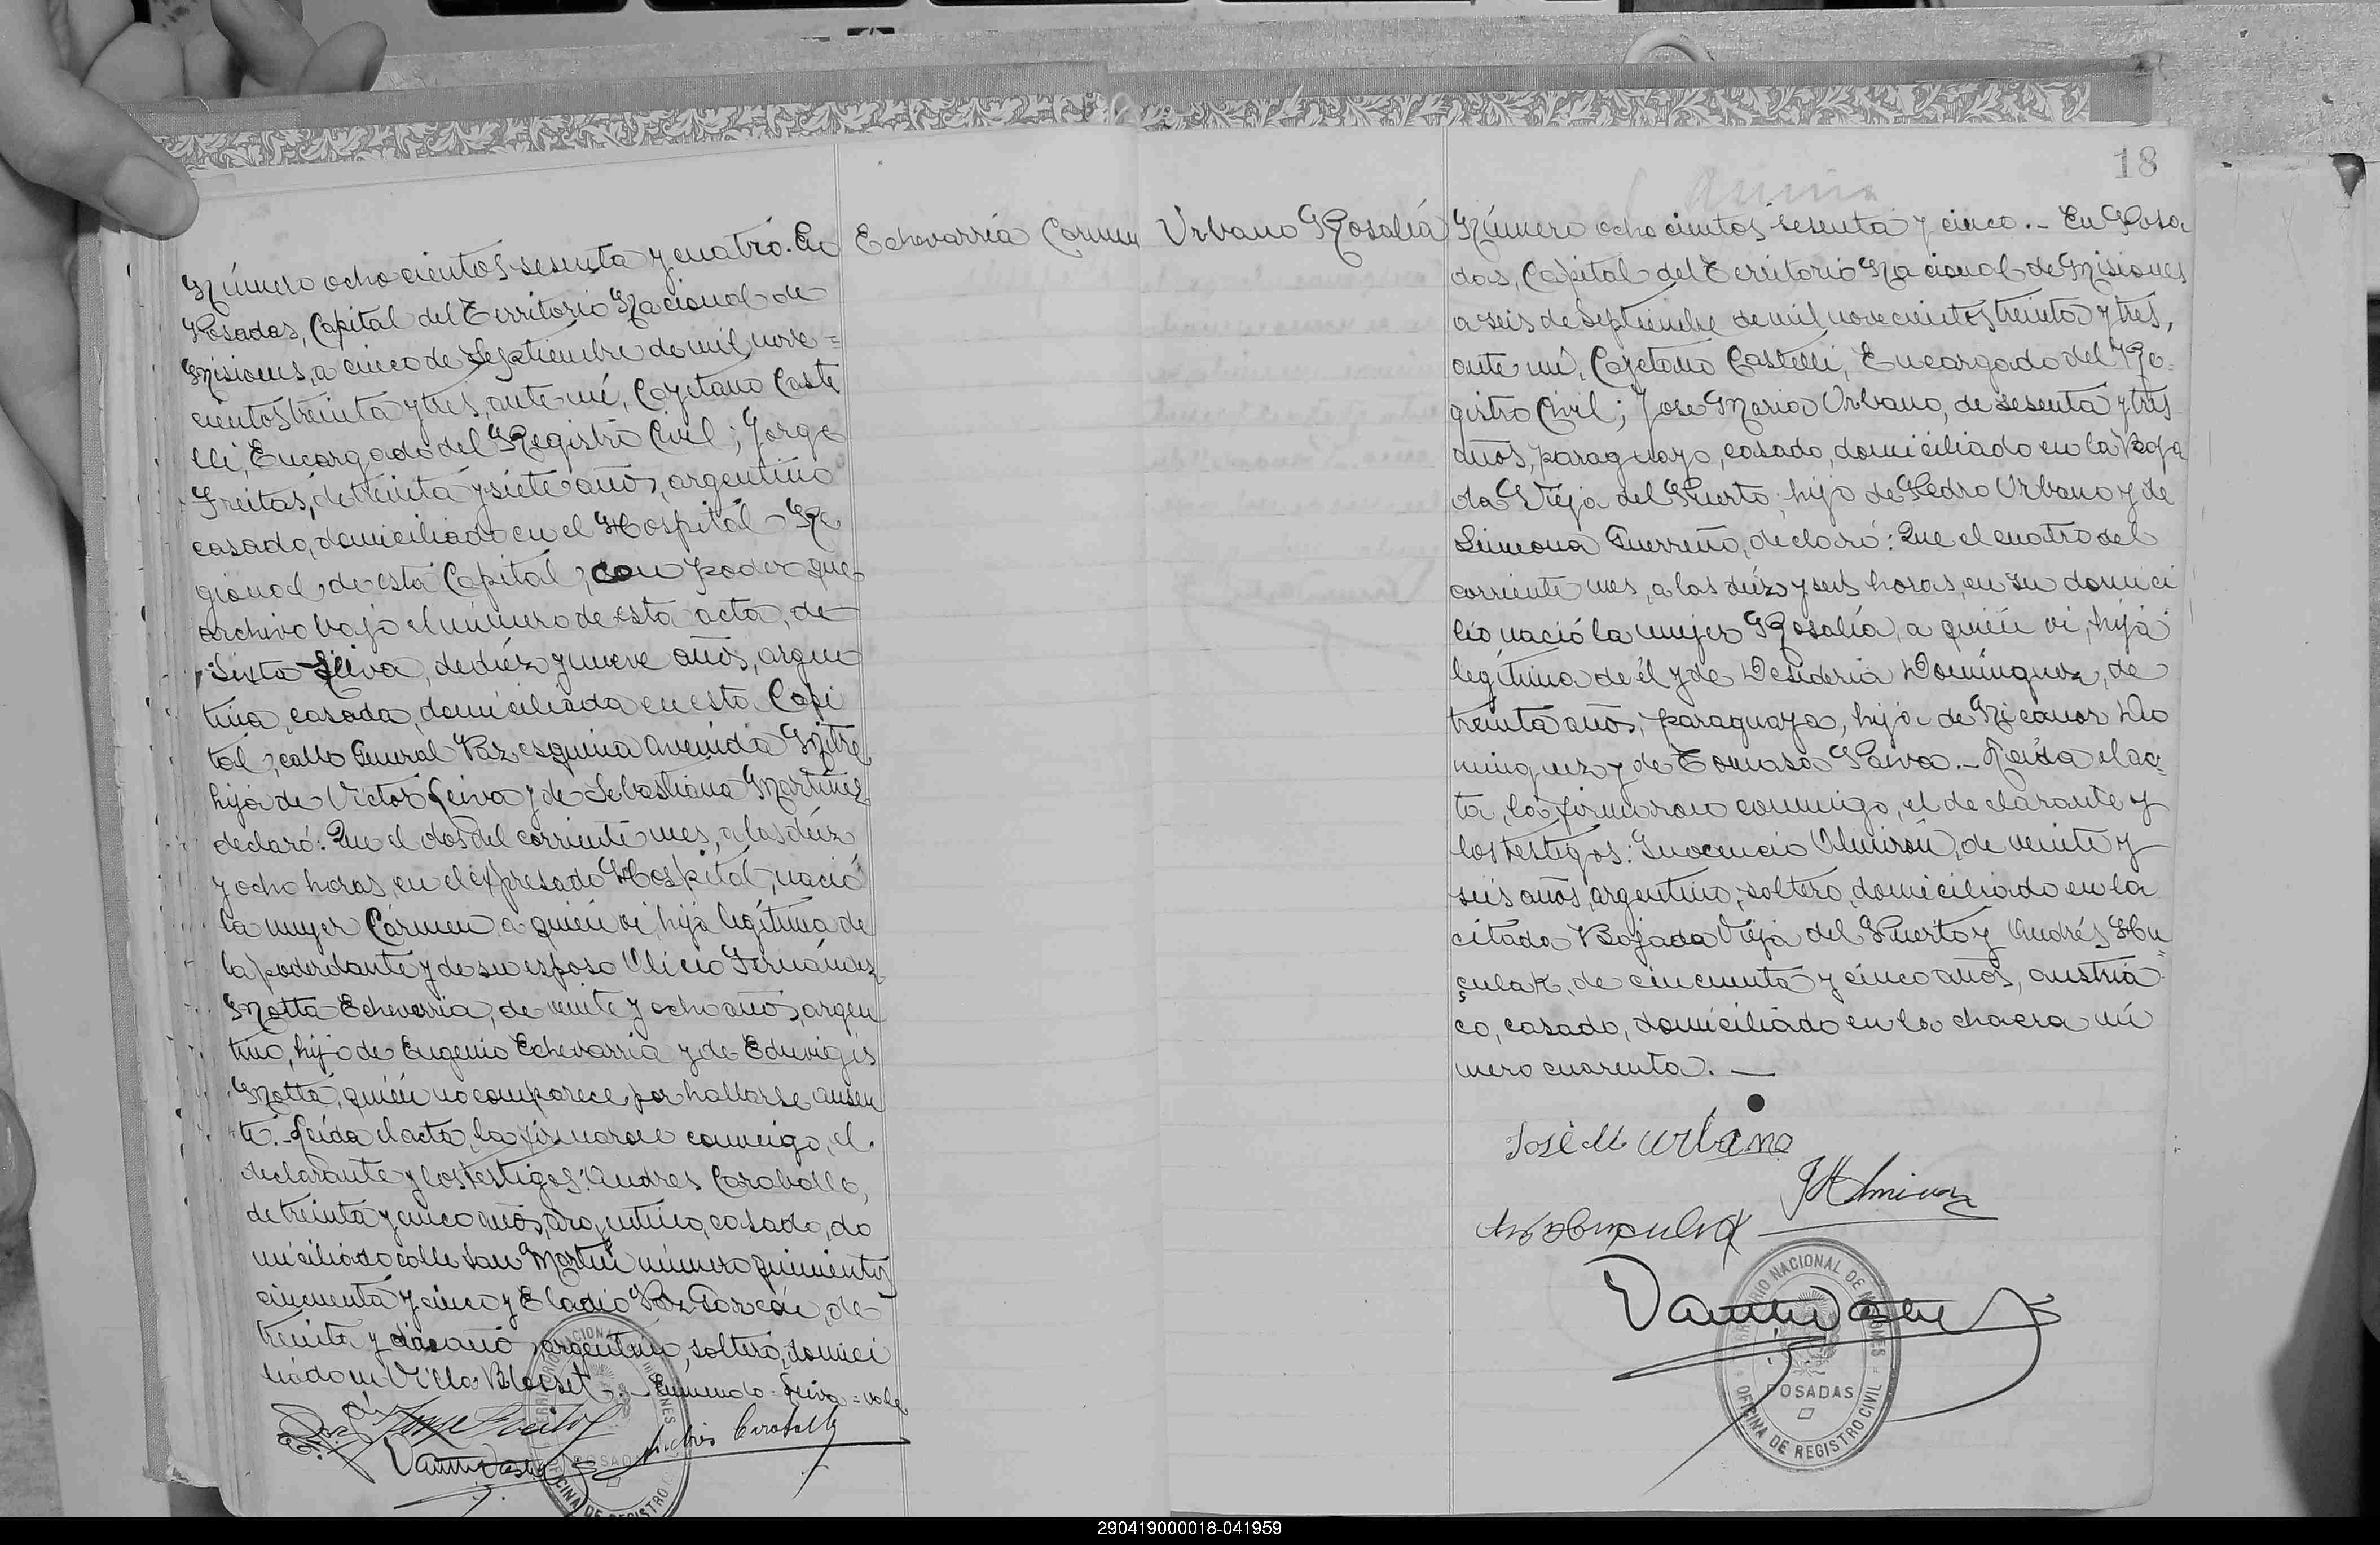 Número ochocientos sesenta y cuatro. En
Posadas, Capital del Territorio Nacional de
Misiones, a cinco de Septiembre de mil nove=
cientos treinta y tres, ante mí, Cayetano Caste
lli, Encargado del Registro Civil; Jorge
Freitas, de treinta y siete años, argentino
casado, domiciliado en el Hospital Re
gional de esta Capital, con poder que
archivo bajo el número de esta acta, de
Sixta Leiva, de diéz y nueve años, argen
tina, casada, domiciliada en esta Capi
tal, calle General Paz esquina Avenida Mitre
hija de Victor Leiva y de Sebastiana Martinez
declaró: Que el dos del corriente mes, a las diéz
y ocho horas, en el expresado Hospital, nació
la mujer Cármen, a quién ví, hija legítima de
la poderdante y de su esposo Alicio Fernández
Motta Echevarria, de veinte y ocho años, argen
tino, hijo de Eugenio Echevarria y de Eduvigis
Motta, quién no comparece por hallarse ausen
te.- Leída el acta, la firmaron conmigo, el
declarante y los testigos: Andres Caraballo,
de treinta y cinco años, argentino, casado, do
miciliado calle San Martin número quinientos
cincuenta y cinco y Eladio Paz, de
treinta y años argentino, soltero, domici
liado en Villa Blosset.- Enmendo-Leiva=vale
Echevarría Carmen
Andrés Caraballo
TERRITORIO NACIONAL DE MISIONES
POSADAS
OFICINA DE REGISTRO CIVIL
18
Urbano Rosalía
Número ocho cientos sesenta y cinco.- En Posa
das, Capital del Territorio Nacional de Misiones
a seis de Septiembre de mil novecientos treinta y tres,
ante mí, Cayetano Castelli, Encargado del Re=
gistro Civil; Jose Maria Urbano, de sesenta y tres
años, paraguayo, casado, domiciliado en la Baja
da Vieja del Puerto, hijo de Pedro Urbano y de
Simeona Guerreño, declaró: Que el cuatro del
corriente mes, a las diéz y seis horas, en su domici
lio nació la mujer Rosalía, a quién ví, hija
legítima de él y de Desideria Dominguez, de
treinta años, paraguaya, hija de Nicanor Do
minguez y de Tomasa Paiva.- Leída el ac=
ta, la firmaron conmigo, el declarante y
los testigos: Inocencio Almirón, de veinte y
seis años, argentino, soltero, domiciliado en la
citada Bajada Vieja del Puerto y Andrés Hu
çulak, de cincuenta y cinco años, austria=
co, casado, domiciliado en la chacra nú
mero cuarenta.
José M Urbano
I Almiron
TERRITORIO NACIONAL DE MISIONES
POSADAS
OFICINA DE REGISTRO CIVIL
290419000018-041959